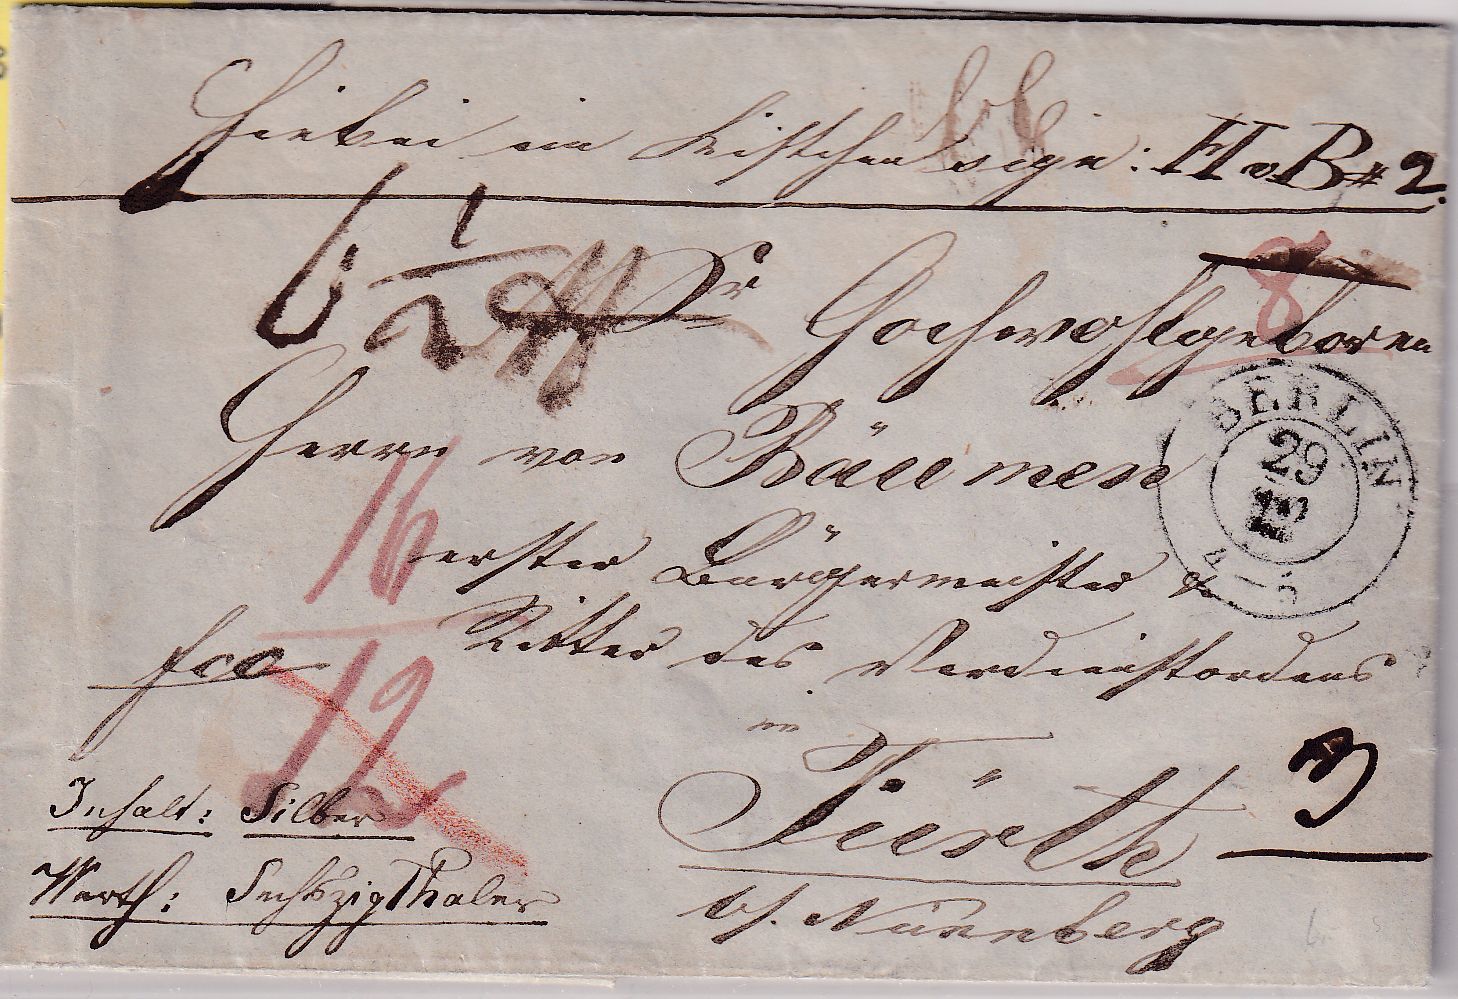 Hierbei ein Kistchen sign: H v. B # 2.
6 1/2
Sr Hochwohlgeboren
8
Herrn von Bäumen
BERLIN
29
12
4-5
16
erster Bürgermeister &
Ritter des Verdienstordens
fco
12
in
Fürth
3
Inhalt: Silber
Werth: Sechszig Thaler
b/. Nürnberg